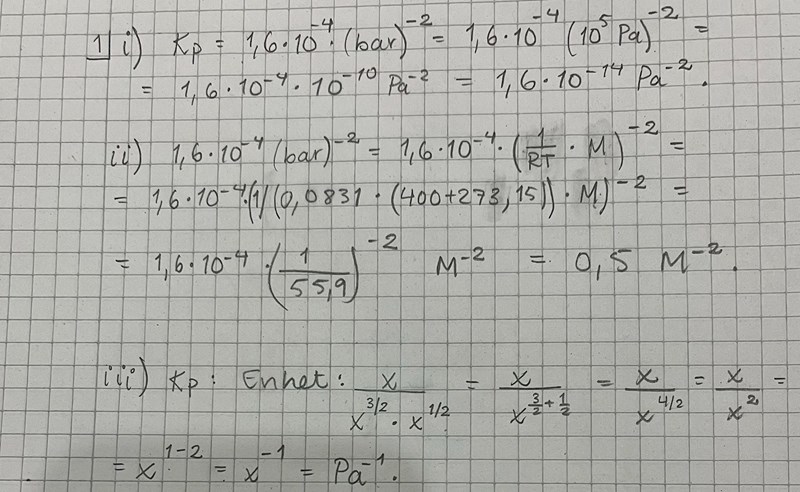 1) i) Kp = 1,6·10⁻⁴·(bar)⁻² = 1,6·10⁻⁴ (10⁵ Pa)⁻² =
= 1,6·10⁻⁴·10⁻¹⁰ Pa⁻² = 1,6·10⁻¹⁴ Pa⁻².
ii) 1,6·10⁻⁴ (bar)⁻² = 1,6·10⁻⁴·(1/RT · M)⁻² =
= 1,6·10⁻⁴·(1/(0,0831·(400+273,15))·M)⁻² =
= 1,6·10⁻⁴·(1/55,9)⁻² M⁻² = 0,5 M⁻².
iii) Kp: Enhet: x/(x^(3/2)·x^(1/2)) = x/x^(3/2+1/2) = x/x^(4/2) = x/x² =
= x¹⁻² = x⁻¹ = Pa⁻¹.